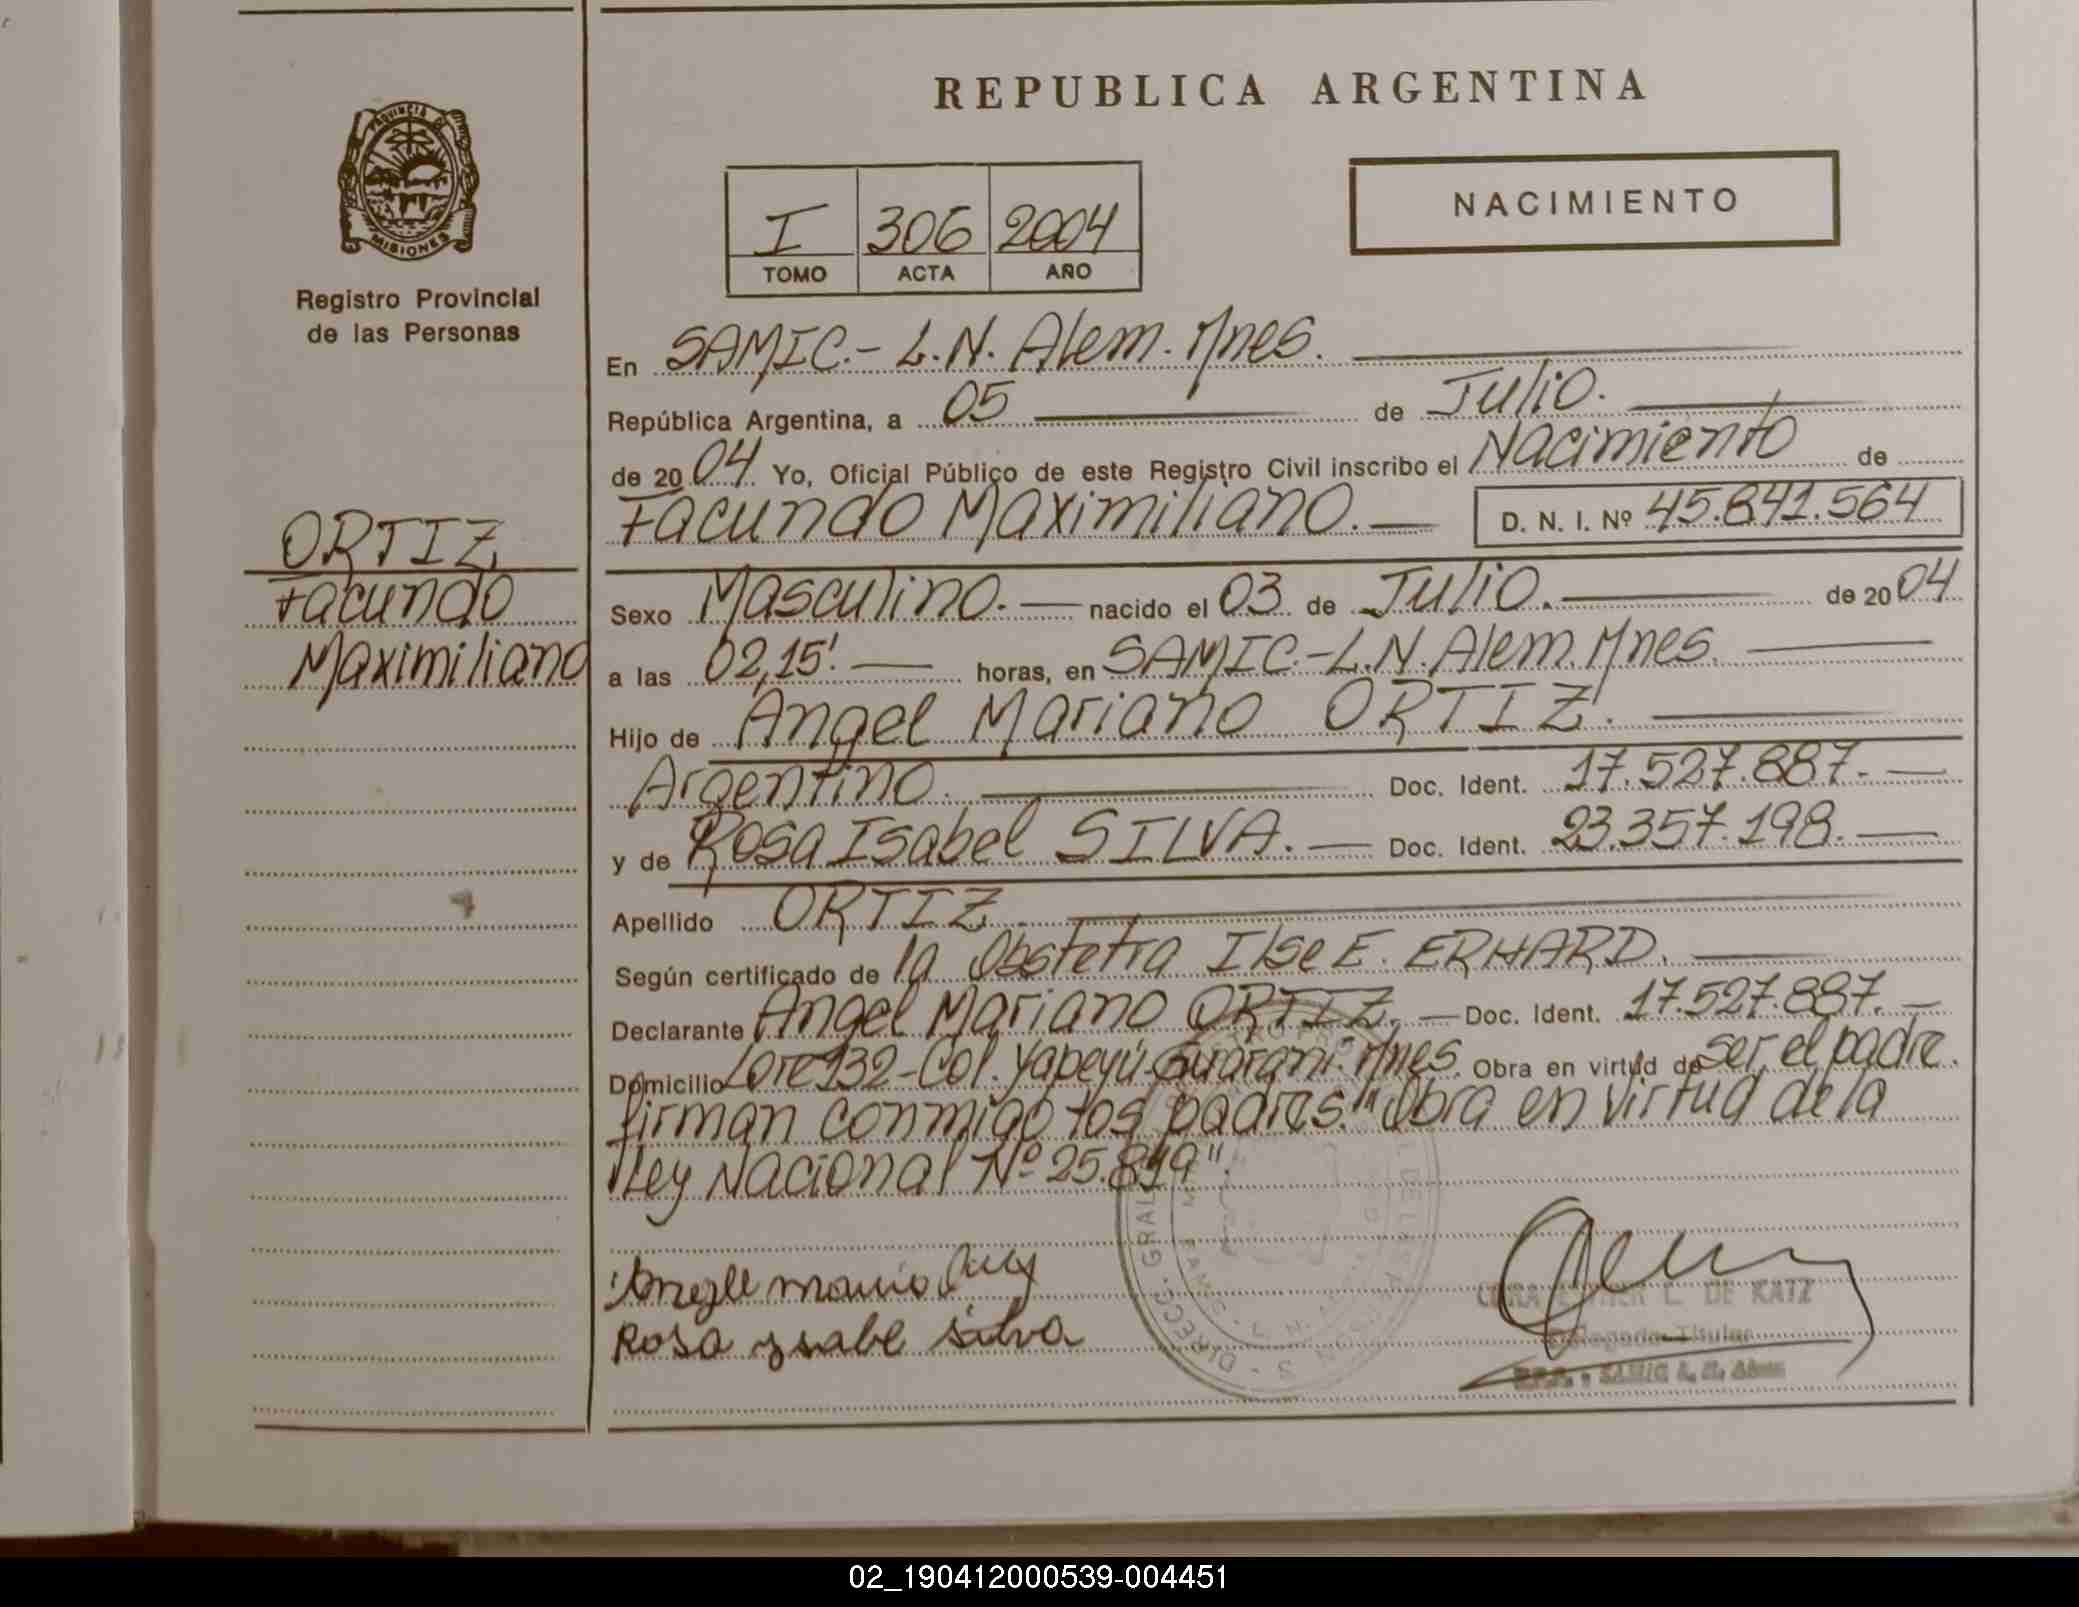 REPUBLICA ARGENTINA
PROVINCIA DE
MISIONES
Registro Provincial
de las Personas
NACIMIENTO
I 306 2004
TOMO ACTA AÑO
En SAMIC.- L.N. Alem. Mnes.
República Argentina, a 05 de Julio.
de 2004. Yo, Oficial Público de este Registro Civil inscribo el Nacimiento de
Facundo Maximiliano. D. N. I. Nº 45.841.564
ORTIZ
Facundo
Maximiliano
Sexo Masculino. nacido el 03 de Julio. de 2004
a las 02,15'. horas, en SAMIC.-L.N. Alem. Mnes.
Hijo de Angel Mariano ORTIZ.
Argentino. Doc. Ident. 17.527.887.
y de Rosa Isabel SILVA. Doc. Ident. 23.357.198.
Apellido ORTIZ.
Según certificado de la Obstetra Ilse E. ERHARD.
Declarante Angel Mariano ORTIZ. Doc. Ident. 17.527.887.
Domicilio Lote 132-Col. Yapeyú-Guaraní. Mnes. Obra en virtud de ser el padre.
firman conmigo los padres. "Obra en virtud de la
Ley Nacional Nº 25.819".
Rosa ysabe silva
L. DE KATZ
Delegada Titular
SAMIC L. N. Alem
02_190412000539-004451